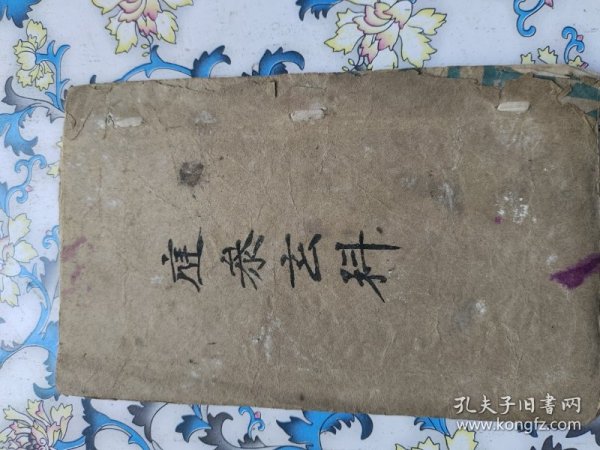 参玄科
孔夫子旧書网
www.kongfz.com